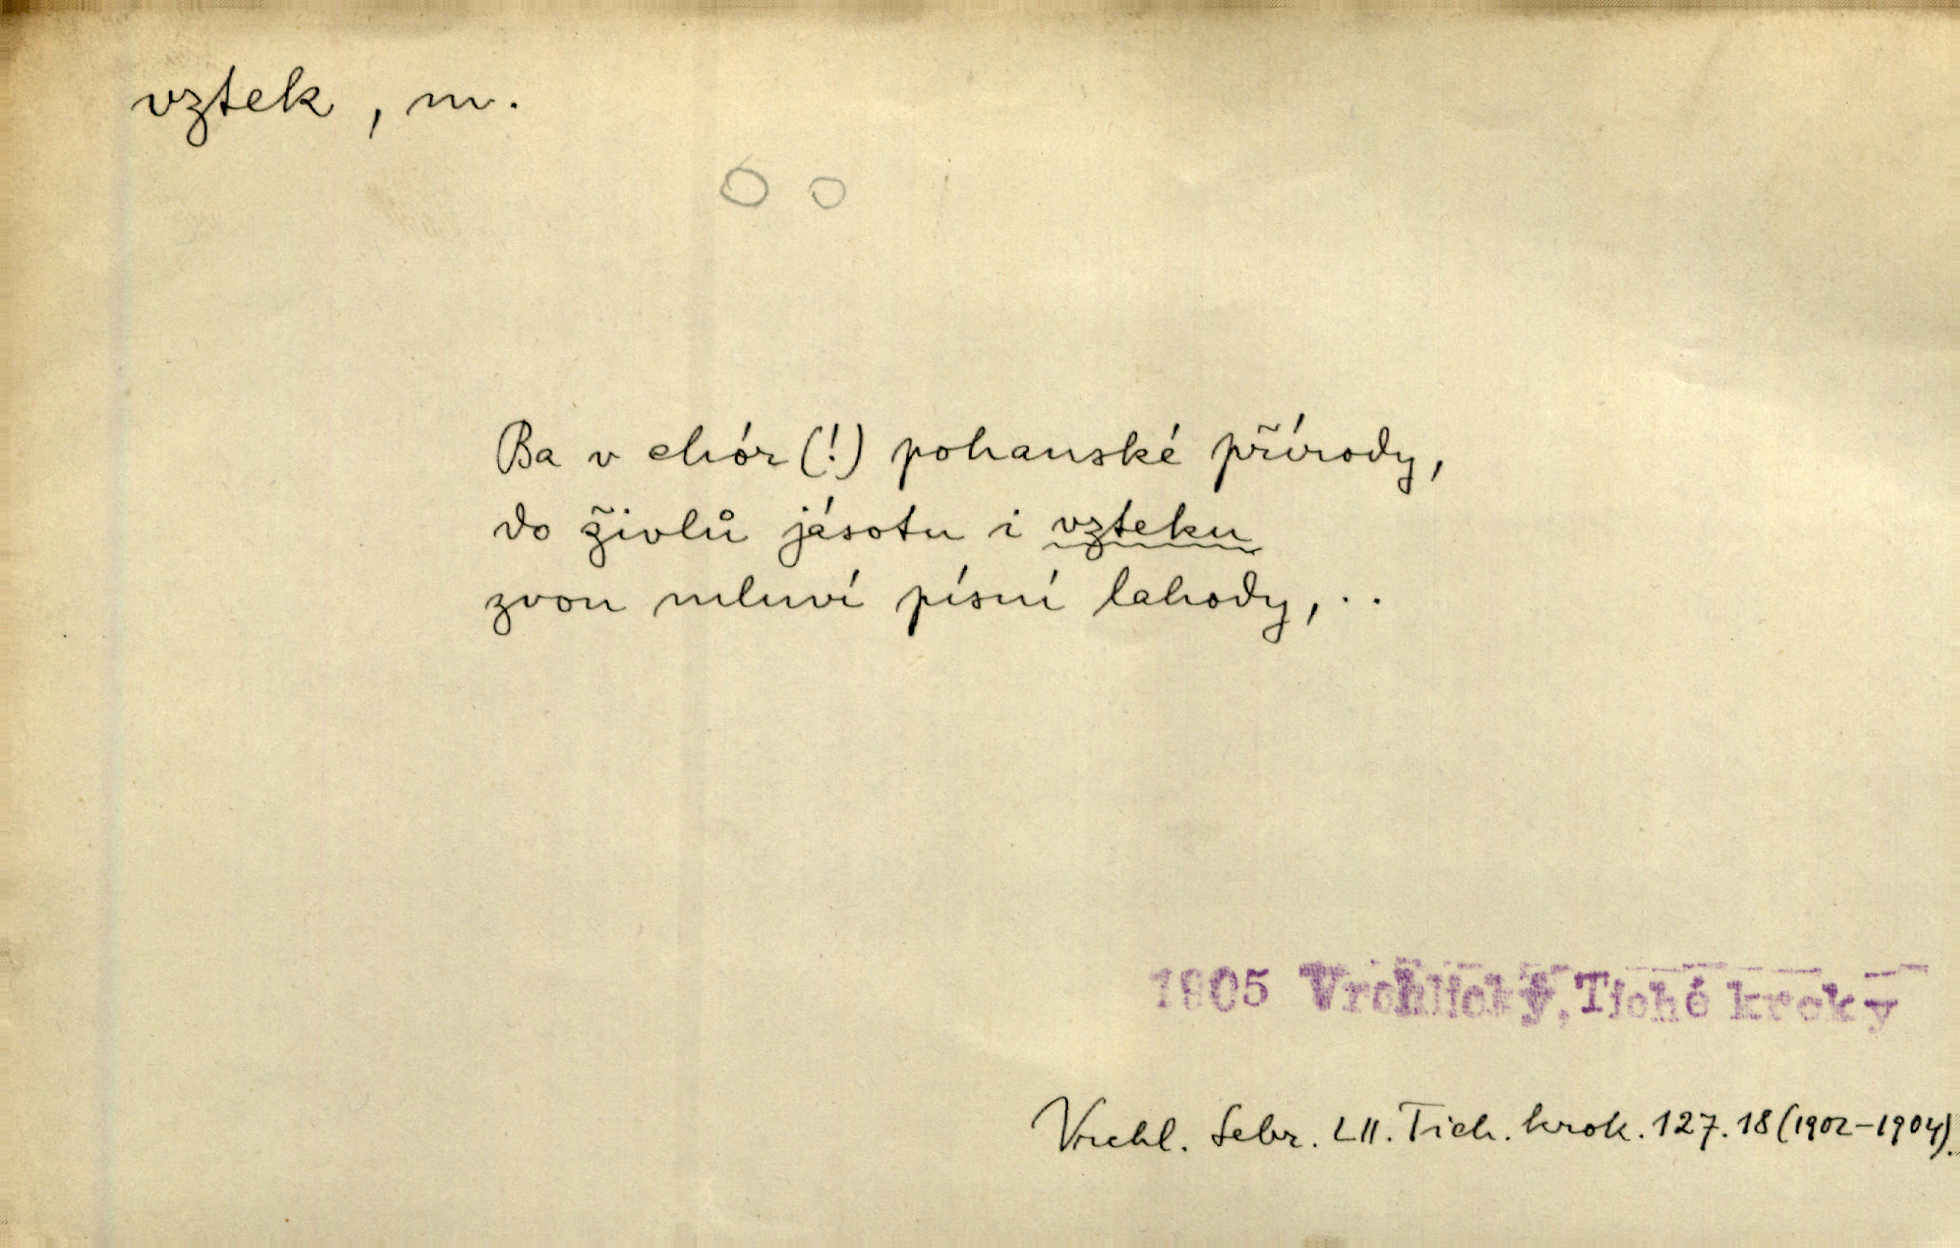 vztek, m.
Ba v chór (!) pohanské přírody,
do živlů jásotu i vzteku
zvon mluví písní lahody, ..
1905 Vrchlický, Tiché kroky
Vrchl. Sebr. LII. Tich. krok. 127. 18 (1902–1904).